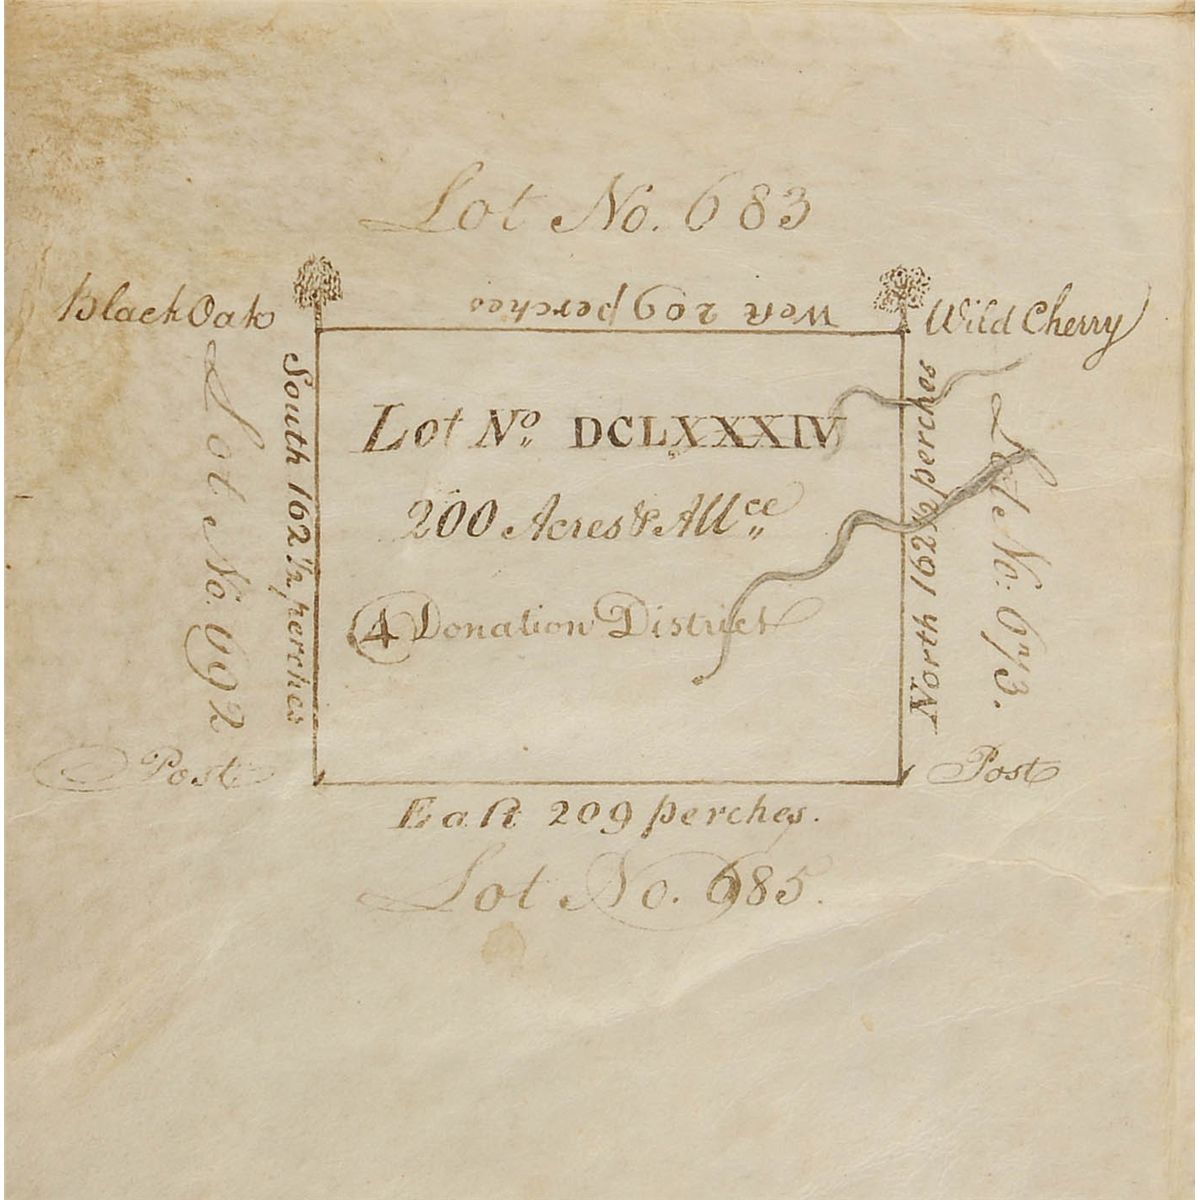 Lot No. 683
Black Oak
West 209 perches
Wild Cherry
South 162 1/2 perches
Lot No. 692
Lot No. DCLXXXIV
200 Acres & All.ce
4 Donation District
North 162 1/2 perches
Lot No: 673.
Post
Post
East 209 perches.
Lot No. 685.